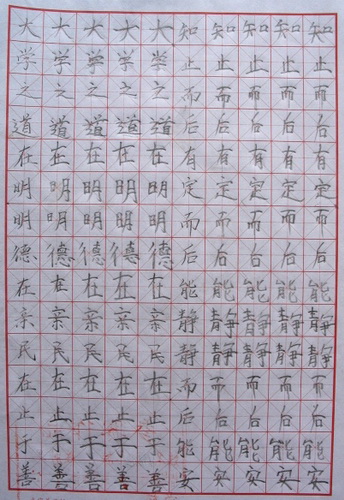 大学之道在明明德在亲民在止于善
大学之道在明明德在亲民在止于善
大学之道在明明德在亲民在止于善
大学之道在明明德在亲民在止于善
大学之道在明明德在亲民在止于善
知止而后有定而后能静静而后能安
知止而后有定而后能静静而后能安
知止而后有定而后能静静而后能安
知止而后有定而后能静静而后能安
知止而后有定而后能静静而后能安